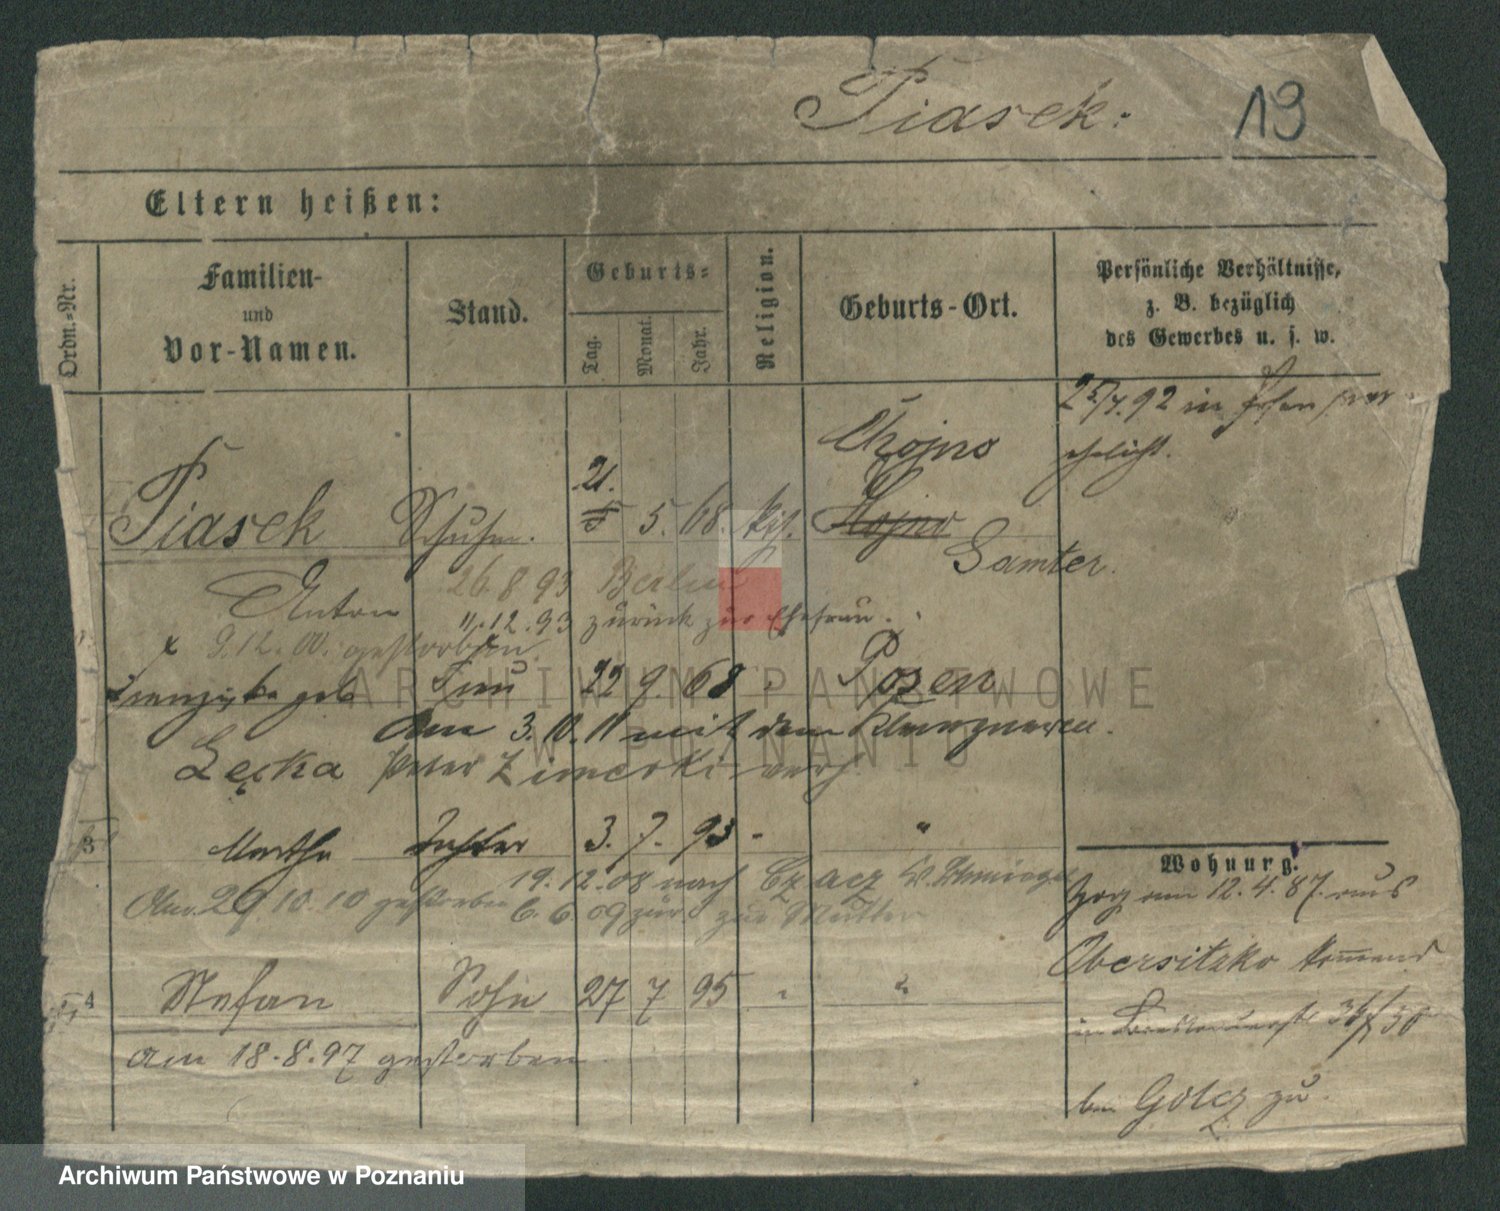 Piasek: 19
Eltern heißen:
Ordn.-Nr.
Familien-
und
Vor-Namen.
Stand.
Geburts=
Tag.
Monat.
Jahr.
Religion.
Geburts-Ort.
Persönliche Verhältnisse,
z. B. bezüglich
des Gewerbes u. s. w.
25/7.92 in Posen ver
ehelicht.
Chojno
21.
Piasek Schuhm. 5 5. 68. kth. Hojno
Samter.
26.8.93 Berlin
Anton
11.12.93 zurück zur Ehefrau.
x 9.12.00. gestorben.
Franziska geb Frau 22 9. 68 " Posen
Am 3.10.11 mit dem
Lęcka Peter verh.
3 Martha Tochter 3. 7. 93 " "
Wohnung.
19.12.08 nach
Am 29.10.10 gestorben 6.6.09 zur Mutter
zog am 12.4.87. aus
Obersitzko kommend
4 Stefan Sohn 27 7 95 " "
in
am 18.8.97 gestorben
bei Golcz zu.
ARCHIWUM PAŃSTWOWE
W POZNANIU
Archiwum Państwowe w Poznaniu